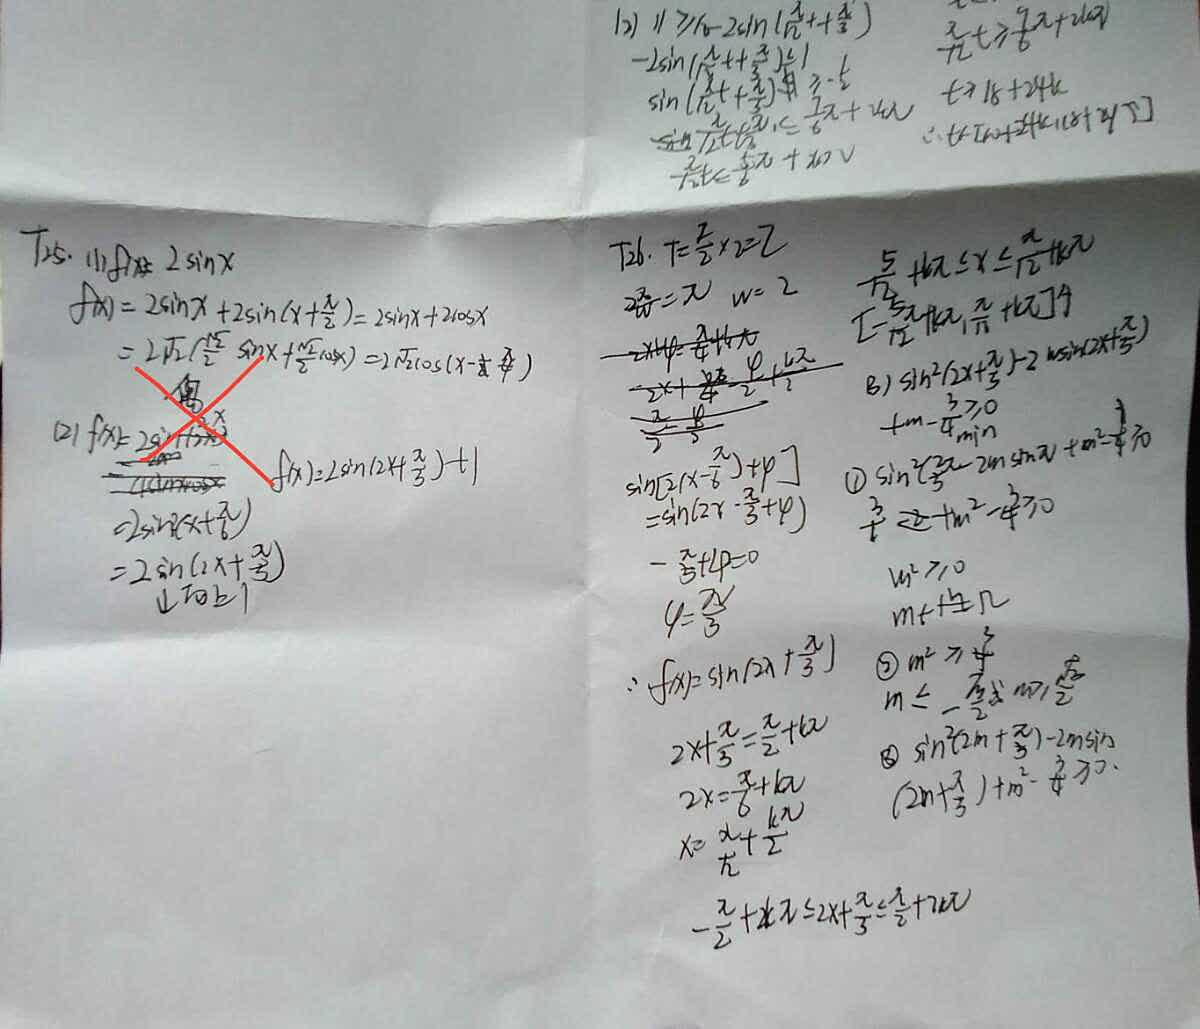 (2) 11 ≥ 10-2sin(π/12 t+π/3)
-2sin(π/12 t+π/3)≤1
sin(π/12 t+π/3) ≥ -1/2
π/12 t+π/3 ≤ 7/6π+2kπ
π/12 t ≥ 9/6π+2kπ
t≥18+24k
T25. (1) f(x)= 2sinx
f(x)=2sinx+2sin(x+π/2)=2sinx+2cosx
=2√2(√2/2 sinx+√2/2 cosx)=2√2cos(x-π/4)
(2) f(x)=
f(x)=2sin(2x+π/3)+1
=2sin2(x+π/6)
=2sin(2x+π/3)
↓向上1
T26. T=π/2×2=π
2π/ω=π w=2
sin[2(x-π/6)+φ]
=sin(2x-π/3+φ)
-π/3+φ=0
φ=π/3
∴ f(x)=sin(2x+π/3)
2x+π/3=π/2+kπ
2x=π/6+kπ
x=π/12+kπ/2
-π/2+2kπ≤2x+π/3≤π/2+2kπ
-5/12+kπ≤x≤π/12+kπ
[-5/12π+kπ,π/12+kπ]↑
(3) sin²(2x+π/3)-2msin(2x+π/3)
+m-3/4≥0
min
m²≥0
② m²≥3/4
m≤-√3/2或m≥√3/2
③ sin²(2m+π/3)-2msin
(2m+π/3)+m²-3/4≥0.